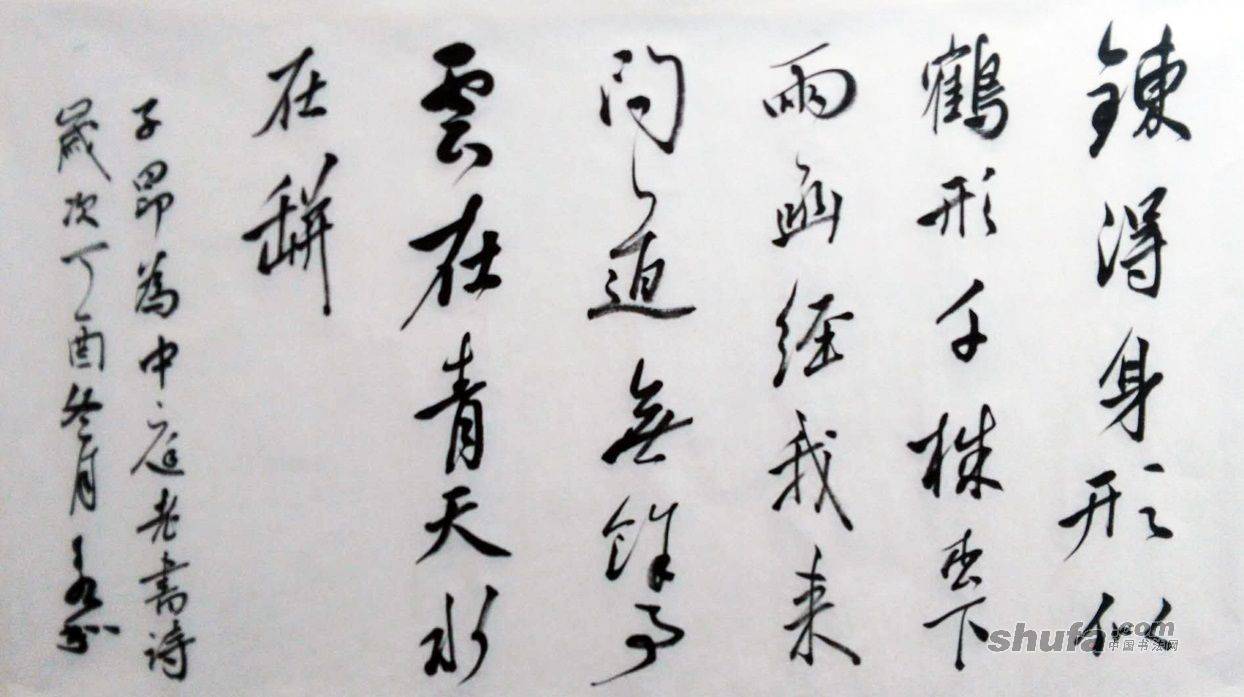 鍊得身形似
鶴形千株枩下
兩函經我來
問道無餘事
雲在青天水
在缾
子昂為中庭老書詩
歲次丁酉冬月
shufa.com
中国书法网